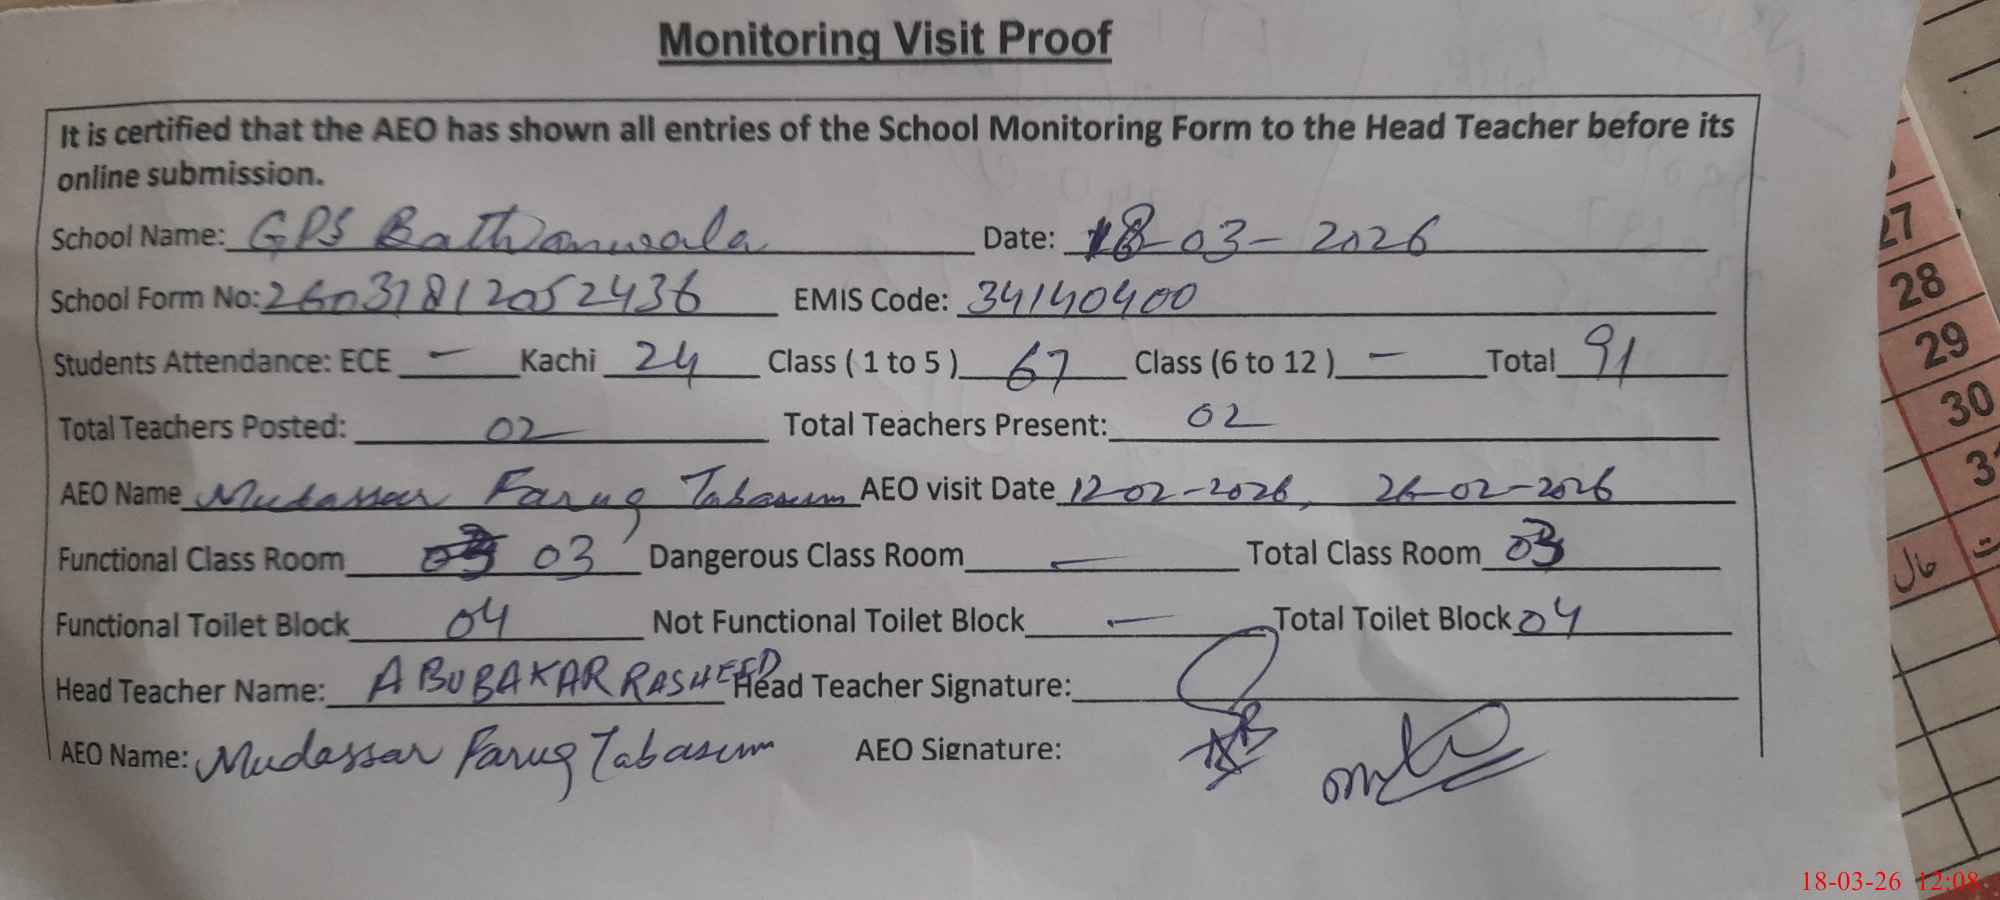 Monitoring Visit Proof
It is certified that the AEO has shown all entries of the School Monitoring Form to the Head Teacher before its
online submission.
School Name: GPS Bathanwala Date: 18-03-2026
School Form No: 26031812052436 EMIS Code: 34140400
Students Attendance: ECE — Kachi 24 Class ( 1 to 5 ) 67 Class (6 to 12 ) — Total 91
Total Teachers Posted: 02 Total Teachers Present: 02
AEO Name Mudassar Faruq Tabasum AEO visit Date 12-02-2026, 26-02-2026
Functional Class Room 03 Dangerous Class Room — Total Class Room 03
Functional Toilet Block 04 Not Functional Toilet Block — Total Toilet Block 04
Head Teacher Name: ABUBAKAR RASHEED Head Teacher Signature:
AEO Name: Mudassar Faruq Tabasum AEO Signature:
27
28
29
30
18-03-26 12:08